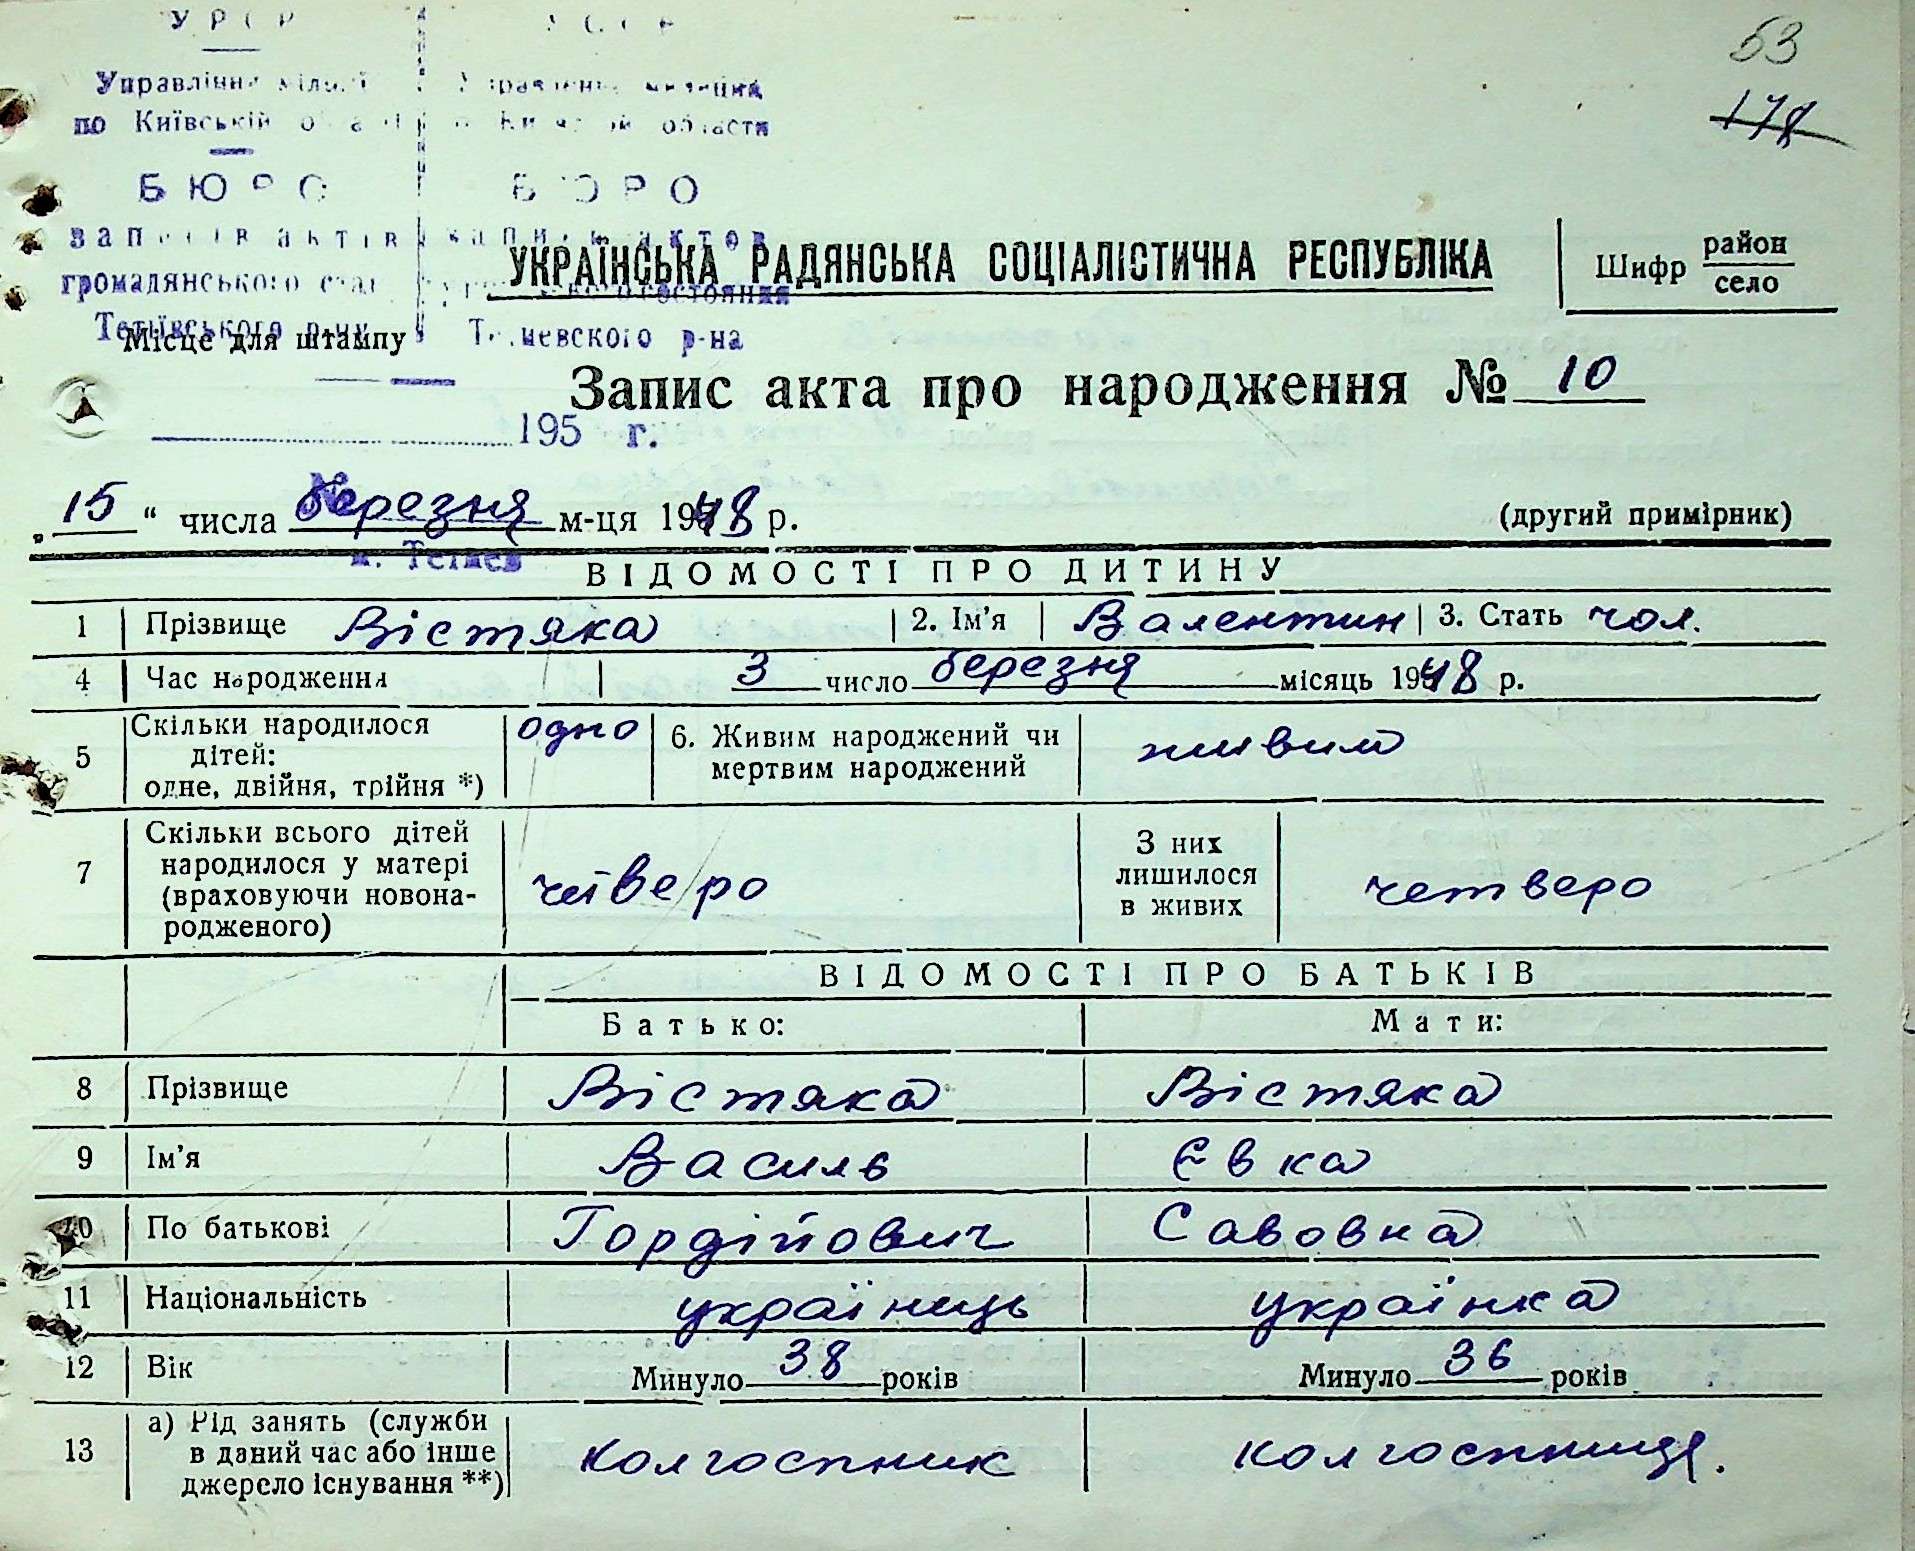 УРСР УССР
Управління міліції Управление милиции
по Київській області по Киевской области
БЮРО БЮРО
записів актів записи актов
громадянського стану гражданского состояния
Тетіївського р-ну Тетиевского р-на
195 г.
№
м. Тетіїв
53
178
УКРАЇНСЬКА РАДЯНСЬКА СОЦІАЛІСТИЧНА РЕСПУБЛІКА
Шифр район
село
Місце для штампу
Запис акта про народження № 10
„15“ числа березня м-ця 1948 р. (другий примірник)
ВІДОМОСТІ ПРО ДИТИНУ
1 Прізвище Вістяка 2. Ім’я Валентин 3. Стать чол.
4 Час народження 3 число березня місяць 1948 р.
5 Скільки народилося
дітей:
одне, двійня, трійня *) одно 6. Живим народжений чи
мертвим народжений живим
7 Скільки всього дітей
народилося у матері
(враховуючи новона-
родженого) четверо З них
лишилося
в живих четверо
ВІДОМОСТІ ПРО БАТЬКІВ
Батько: Мати:
8 Прізвище Вістяка Вістяка
9 Ім’я Василь Євка
10 По батькові Гордійович Савовна
11 Національність україниць українка
12 Вік Минуло 38 років Минуло 36 років
13 а) Рід занять (служби
в даний час або інше
джерело існування **) колгоспник колгоспниця.